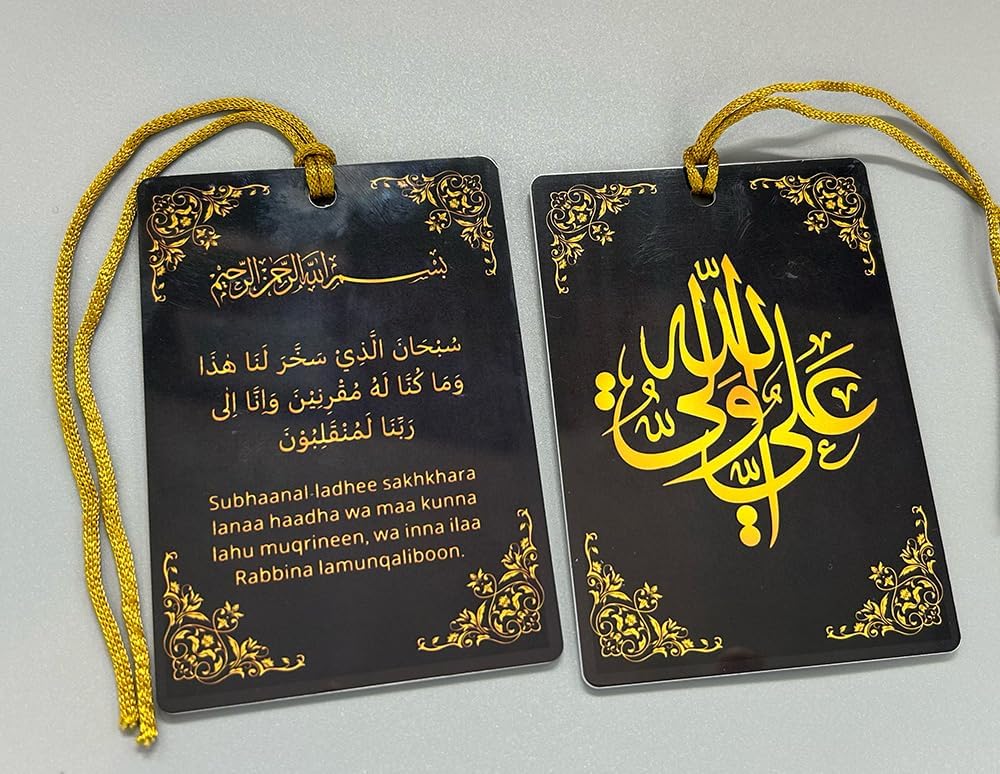 بسم الله الرحمن الرحيم
سُبْحَانَ الَّذِيْ سَخَّرَ لَنَا هٰذَا
وَمَا كُنَّا لَهٗ مُقْرِنِيْنَ وَاِنَّا اِلٰى
رَبِّنَا لَمُنْقَلِبُوْنَ
Subhaanal-ladhee sakhkhara
lanaa haadha wa maa kunna
lahu muqrineen, wa inna ilaa
Rabbina lamunqaliboon.
عَلِيٌّ وَلِيُّ اللّٰه